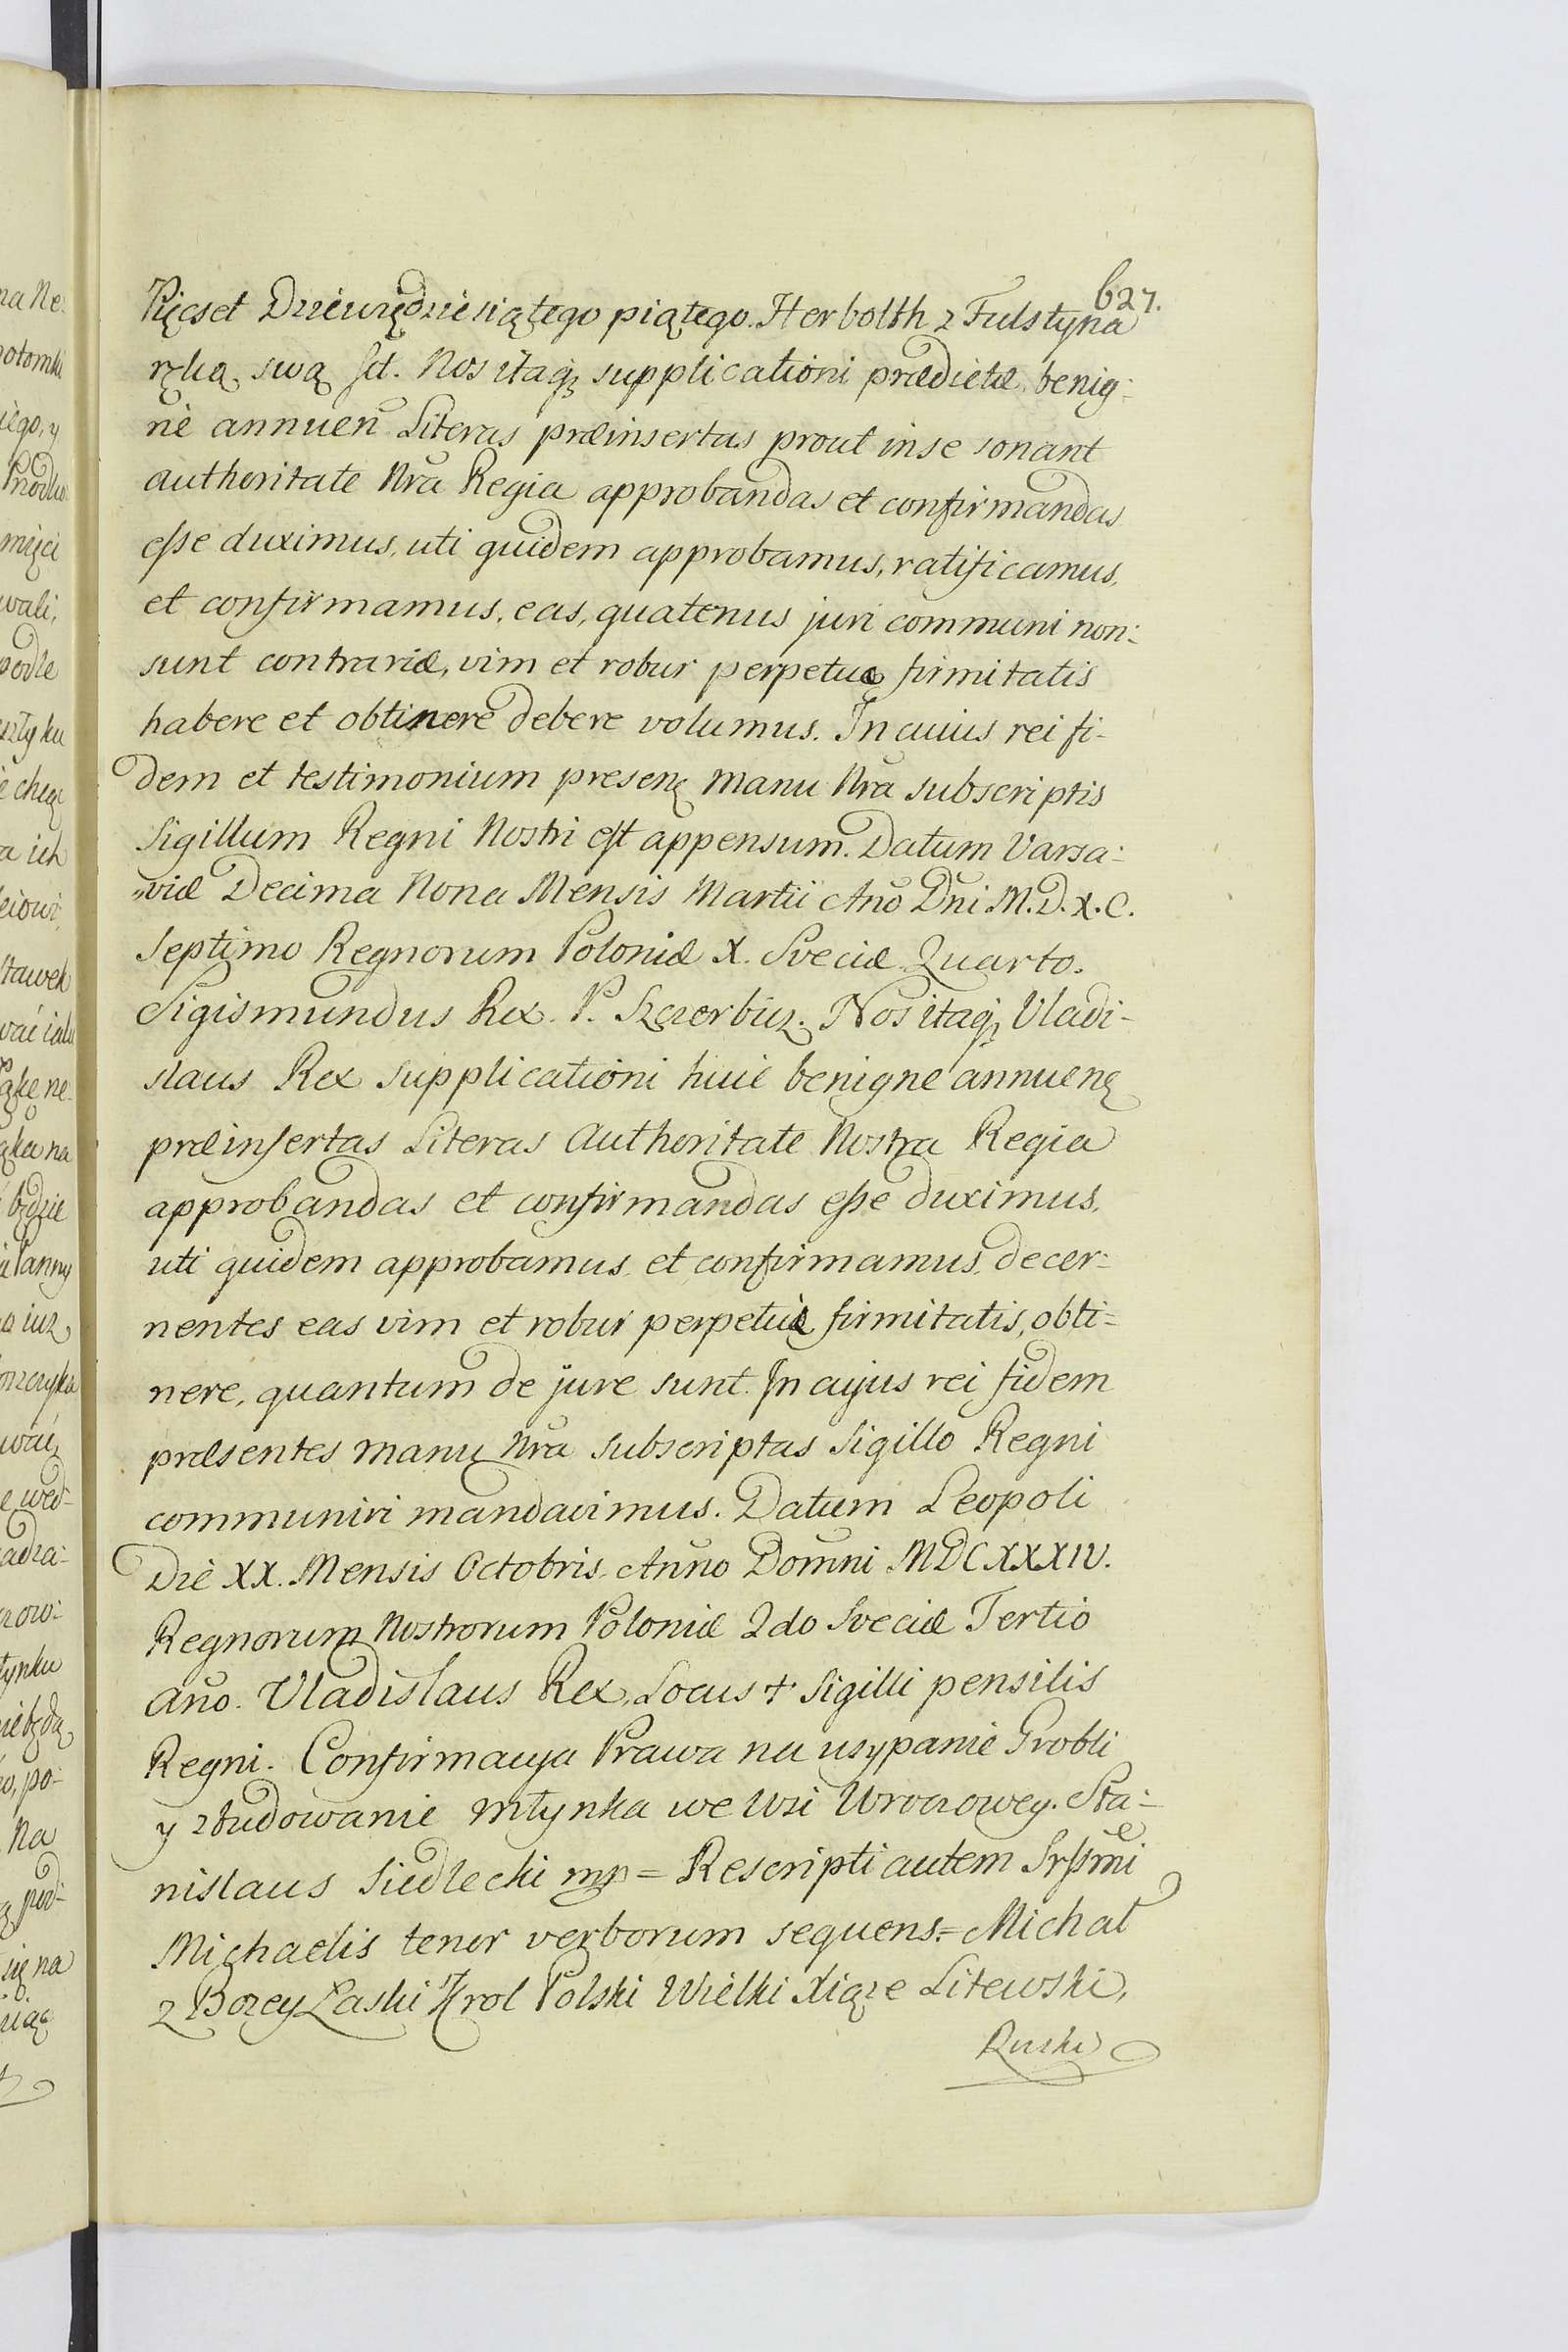 627.
Pięcset Dziewiędziesiątego piątego. Herbolth z Fulstyna
ręką swą sst. Nos itaq₃ supplicationi prædictæ benig:
nè annuen̄ Literas præinsertas prout in se sonant
authoritate Nr̄a Regia approbandas et confirmandas
esse duximus, uti quidem approbamus, ratificamus,
et confirmamus, eas, quatenus juri communi non:
sunt contrariæ, vim et robur perpetuæ firmitatis
habere et obtinere debere volumus. In cuius rei fi-
dem et testimonium presenę manu Nr̄a subscriptis
Sigillum Regni Nostri est appensum. Datum Varsa:
viæ Decima Nona Mensis Martii An̄o Dn̄i M.D.X.C.
Septimo Regnorum Poloniæ X. Sveciæ Quarto.
Sigismundus Rex. P. Szczerbiiz. Nos itaq₃ Vladi-
slaus Rex supplicationi huic benigne annuenę
præinsertas Literas Authoritate Nostra Regia
approbandas et confirmandas esse duximus,
uti quidem approbamus et confirmamus, decer-
nentes eas vim et robur perpetuæ firmitatis, obti=
nere, quantum de jure sunt. In cujus rei fidem
præsentes manu nr̄a subscriptas Sigillo Regni
communiri mandavimus. Datum Leopoli
Die XX. Mensis Octobris. Anno Domni MDCXXXIV.
Regnorum Nostrorum Poloniæ 2do Sveciæ Tertio
an̄o. Vladislaus Rex, Locus + Sigilli pensilis
Regni. Confirmacya Prawa na usypanie Grobli
y zbudowanie młynka we Wsi Wrocowey. Sta:
nislaus Siedlecki mp = Rescripti autem Srssmi
Michaelis tenor verborum sequens = Michał
z Bozey Łaski Krol Polski Wielki Xiąze Litewski,
Ruski